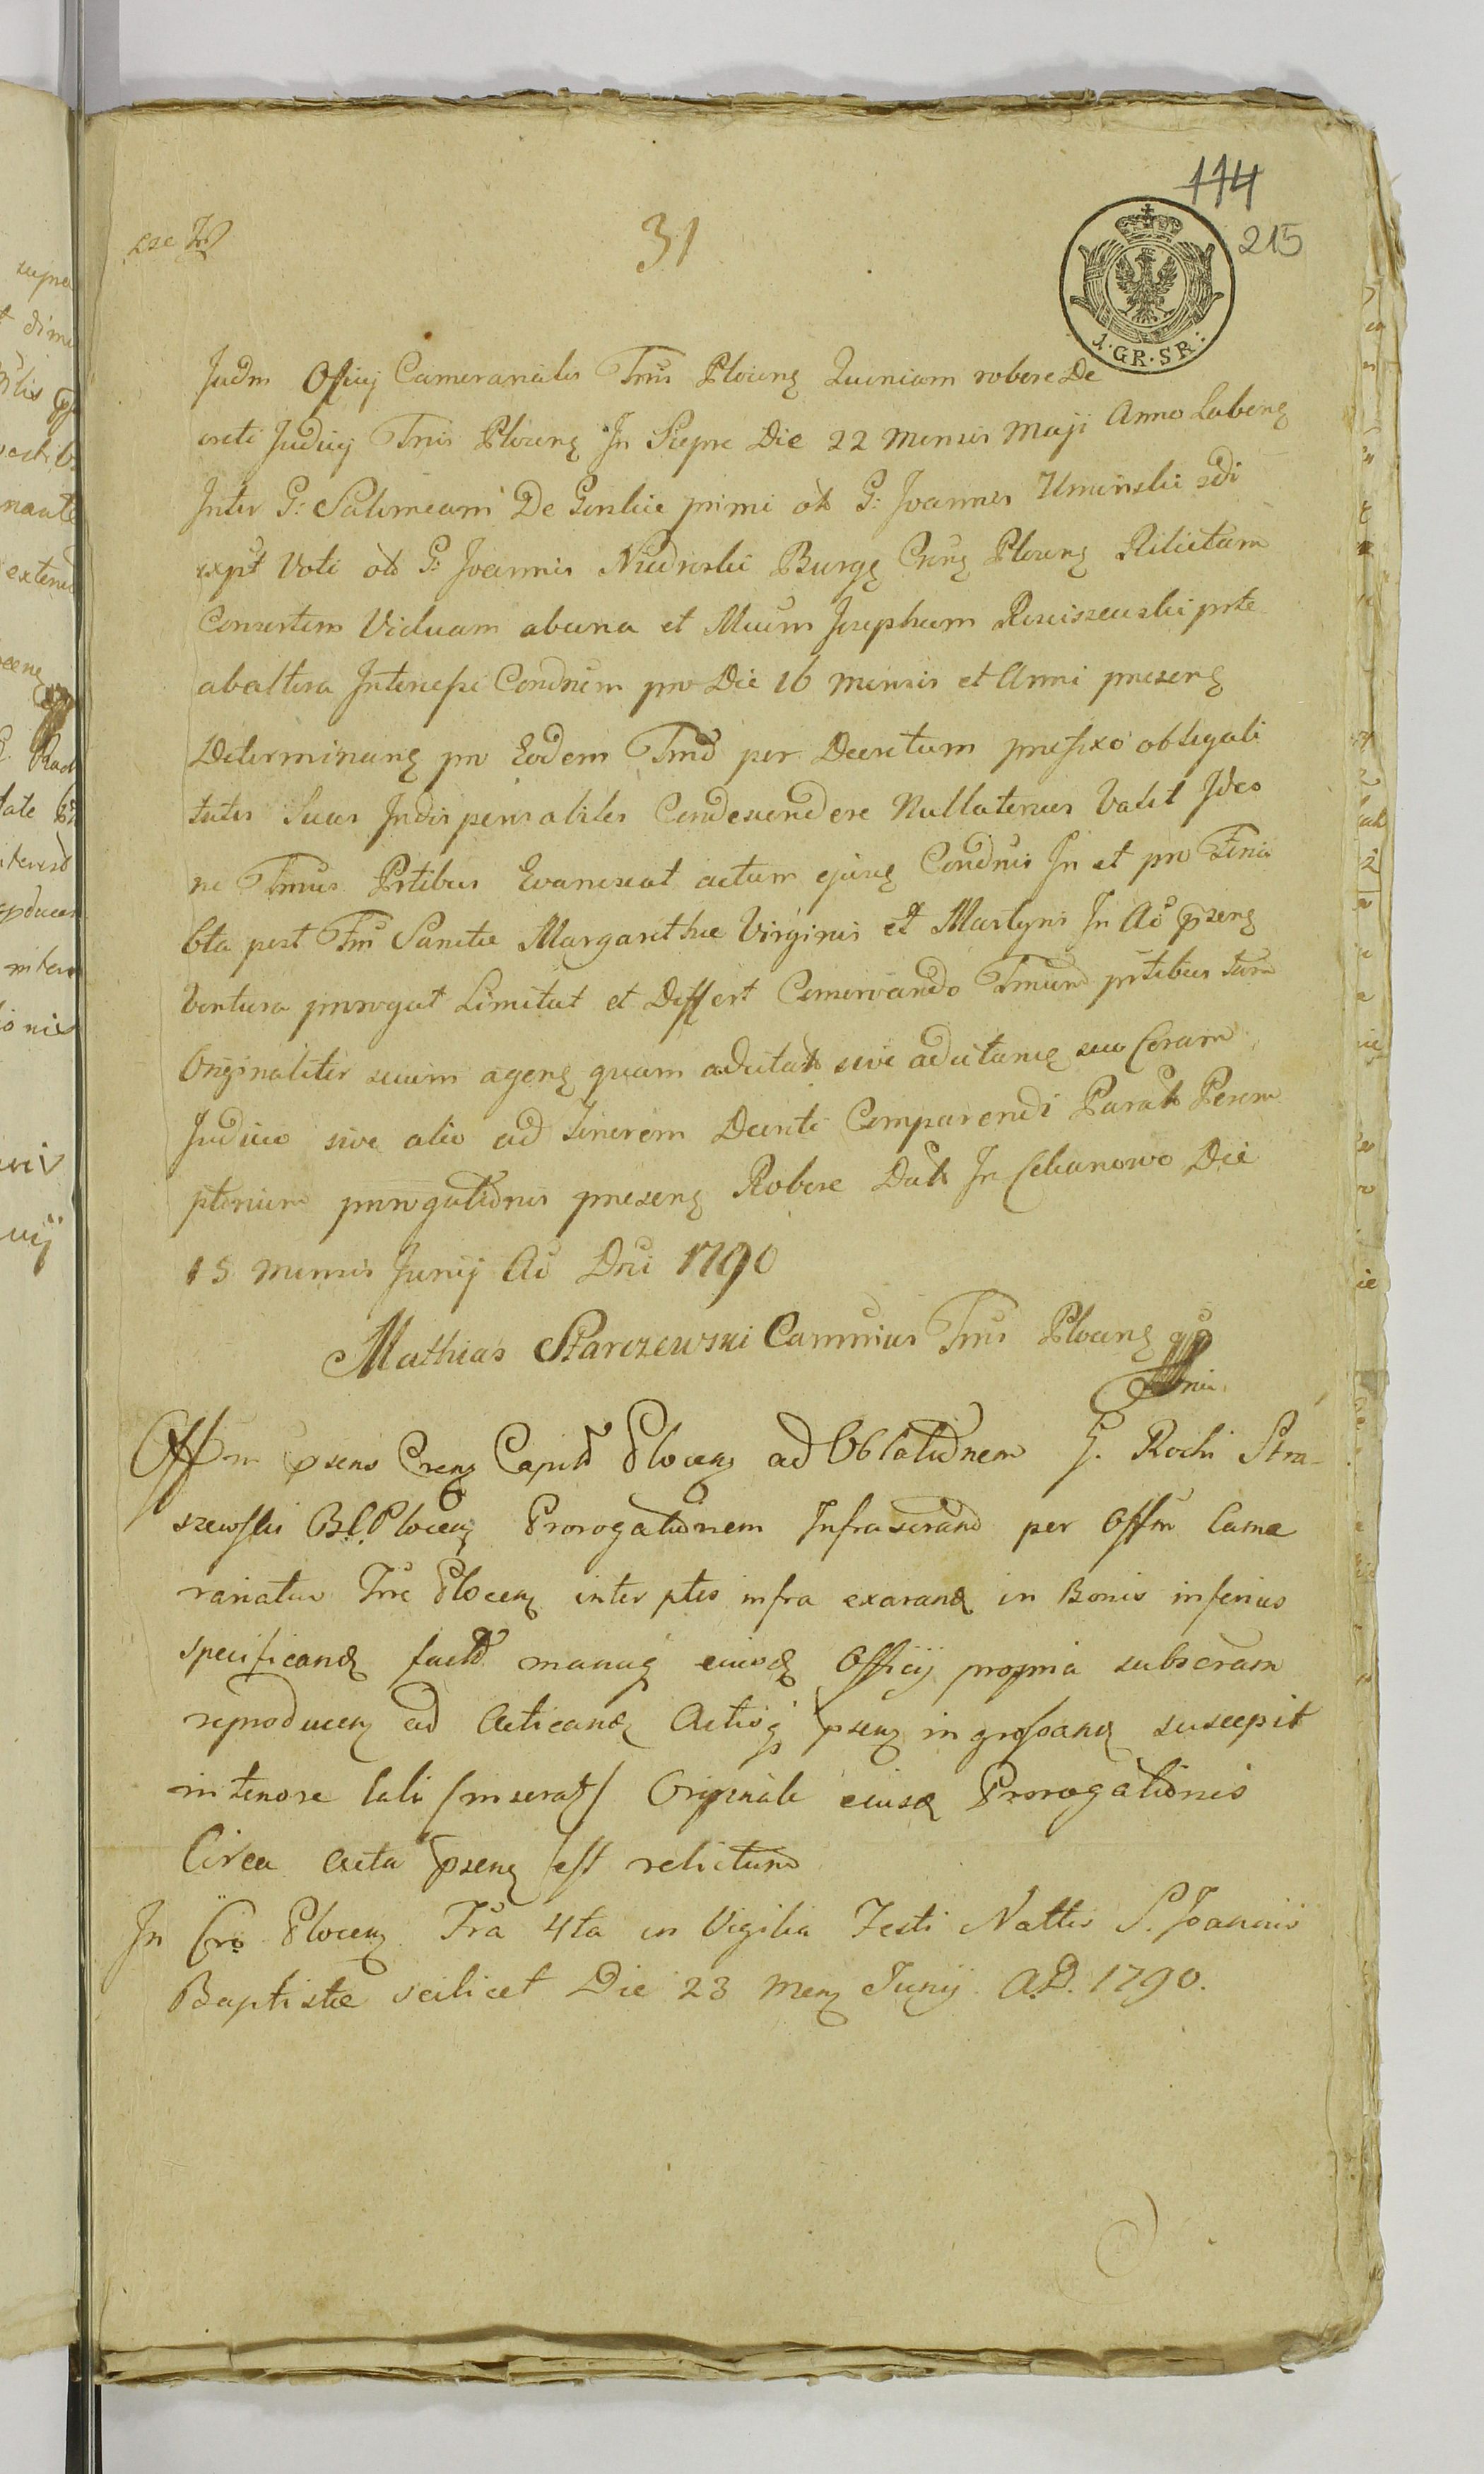 114
31
215
1. GR. SR.
Judm Officij Cameranalis Trrus Plocens Quoniam robore De
creti Judicij Trris Plocens In Sierpc Die 22 mensis Maji Anno Labens
Inter G: Salomeam De primi ol G: Joannis Uminski sdi
expt Voti ol G: Joannis Niedroski Burgs Crens Plocens Relictam
Consortem Viduam abuna et Mcum Josephum Rosciszewski prte
abaltera Intercessi Condnem pro Die 16 mensis et Anni presens
Determinans pro Eodem Tmo per Decretum prefixo obligati
tutis Suas Indispensabiles Condescendere Nullatenus Valet Ideo
ne Tmus Prtibus Evanescat actum ejus Condnis In et pro Feria
6ta post Fm Sanctae Margarethae Virginis et Martyris In Ao psens
Ventura prorogat Limitat et Differt Conservando Tmum prtibus tam
Originaliter suum agens quam adcitat sive adcitans suo Coram
Judicio sive alio ad Tenorem Decreti Comparendi Parat Perem
ptorium prorogationis presens Robore Dat In Celianowo Die
15 mensis Junij Ao Dni 1790
Mathias Starczewski Camrius Trrus Plocens
Offm psens Crens Capitl Plocens ad Oblationem G. Rochi Stra-
szewski B.C. Plocens Prorogationem Infrascrand per Offm Came
rariatus Trrae Plocens inter ptes infra exarand in Bonis inferius
specificand factd manuq eiusd Officij propria subscram
reproducens ad Acticand Actisq psens ingrossand suscepit
in tenore tali /inserat/ Originale eiusd Prorogationis
Circa acta psens est relictum
In Cro Plocens Fra 4ta in Vigilia Festi Nattis S. Joannis
Baptistae scilicet Die 23 Mens Junij A.D. 1790.